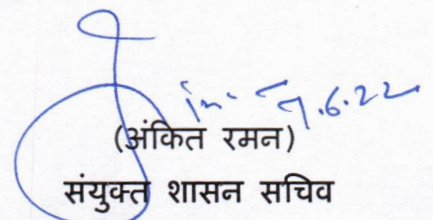 7.6.22
(अंकित रमन)
संयुक्त शासन सचिव